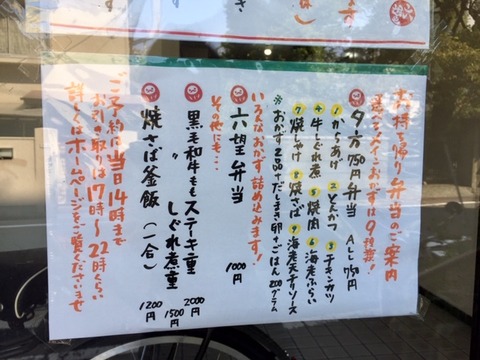 お持ち帰り弁当のご案内
選べるメインおかずは9種類!
夕方750円弁当 A L 750円
1からあげ 2とんかつ 3チキンカツ
4牛しぐれ煮 5焼肉 6海老ふらい
7焼しゃけ 8焼さば 9海老天チリソース
※おかず2品+だし巻き卵+ごはん200グラム
いろんなおかず詰め込みます!
六望弁当 1000円
その他にも…
黒毛和牛ももステーキ重 2000円
〃 しぐれ煮重 1500円
焼さば釜飯(一合) 1200円
ご予約は当日14時まで
お引き取りは17時〜22時くらい
詳しくはホームページをご覧くださいませ